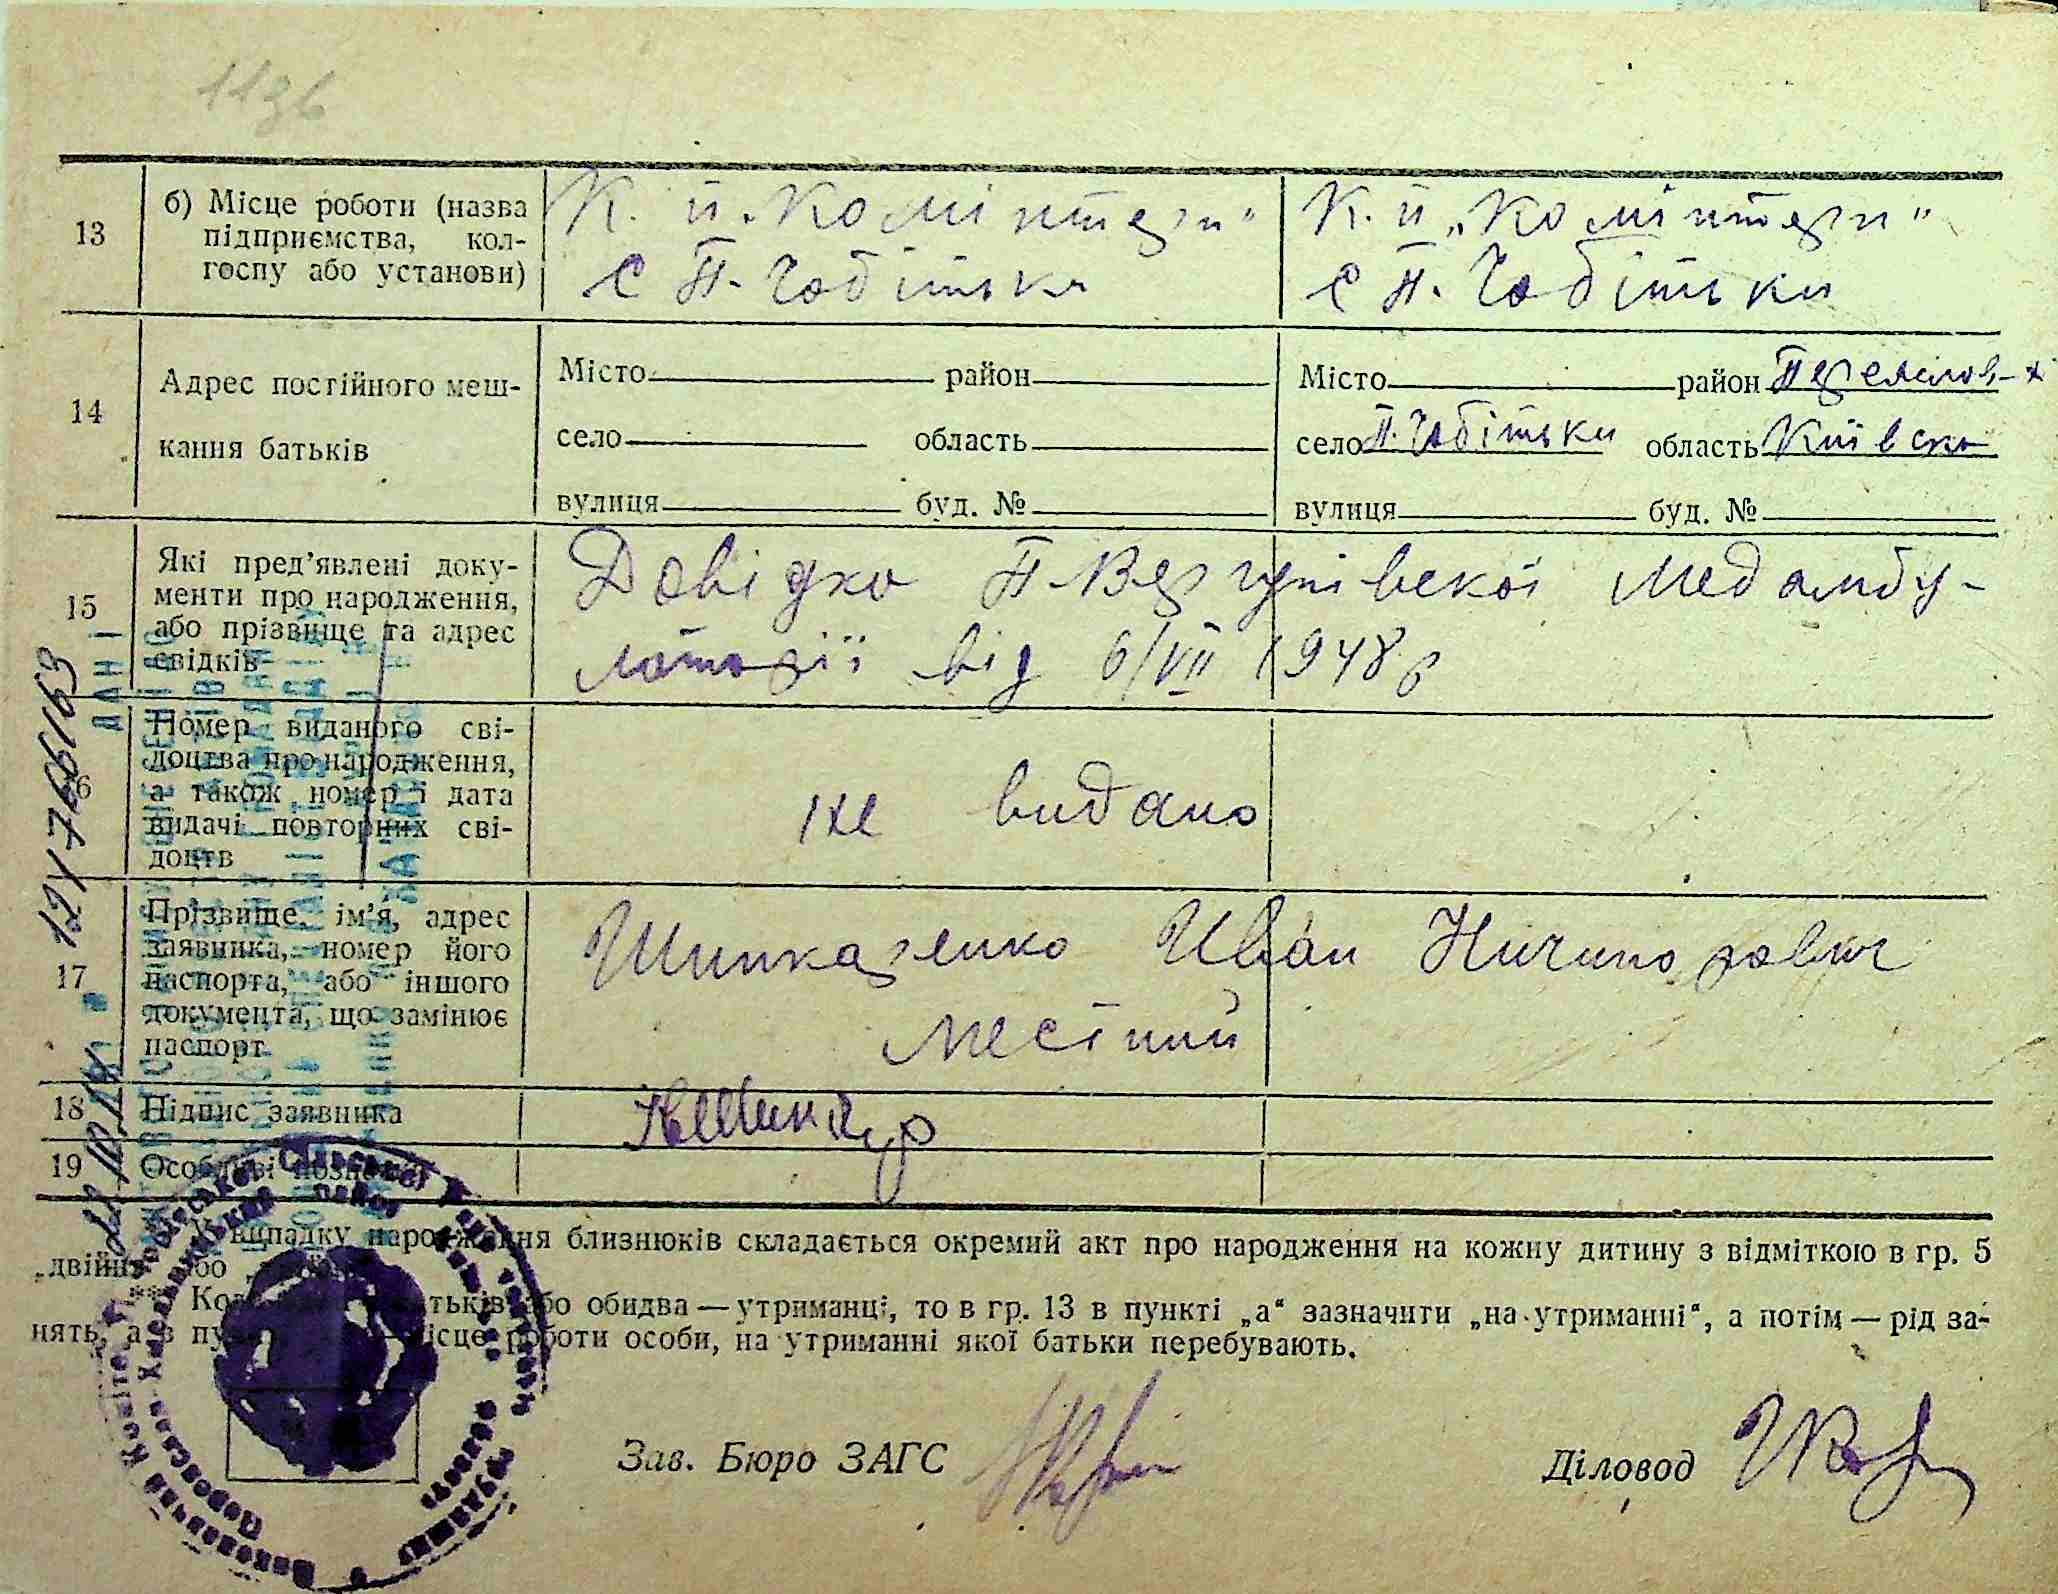 13
б) Місце роботи (назва
підприємства, кол-
госпу або установи)
К. ім. „Комінтерн"
с П. Чобітьки
К. ім. „Комінтерн"
с П. Чобітьки
14
Адрес постійного меш-
кання батьків
Місто район
село область
вулиця буд. №
Місто район
село П. Чобітьки область Київськ
вулиця буд. №
15
Які пред'явлені доку-
менти про народження,
або прізвище та адрес
свідків
Довідка П-Вергунівської Медамбу-
латорії від 6/VII 1948 р
16
Номер виданого сві-
доцтва про народження,
а також номер і дата
видачі повторних сві-
доцтв
не видано
17
Прізвище, ім'я, адрес
заявника, номер його
паспорта, або іншого
документа, що замінює
паспорт
Шинкаренко Иван Ничипорович
Месіний
18
Підпис заявника
19
Особливі позначки
У випадку народження близнюків складається окремий акт про народження на кожну дитину з відміткою в гр. 5
„двійня" або
** Коли батьків або обидва — утриманці, то в гр. 13 в пункті „а" зазначити „на утриманні", а потім — рід за-
нять, а в пункті місце роботи особи, на утриманні якої батьки перебувають.
Зав. Бюро ЗАГС
Діловод